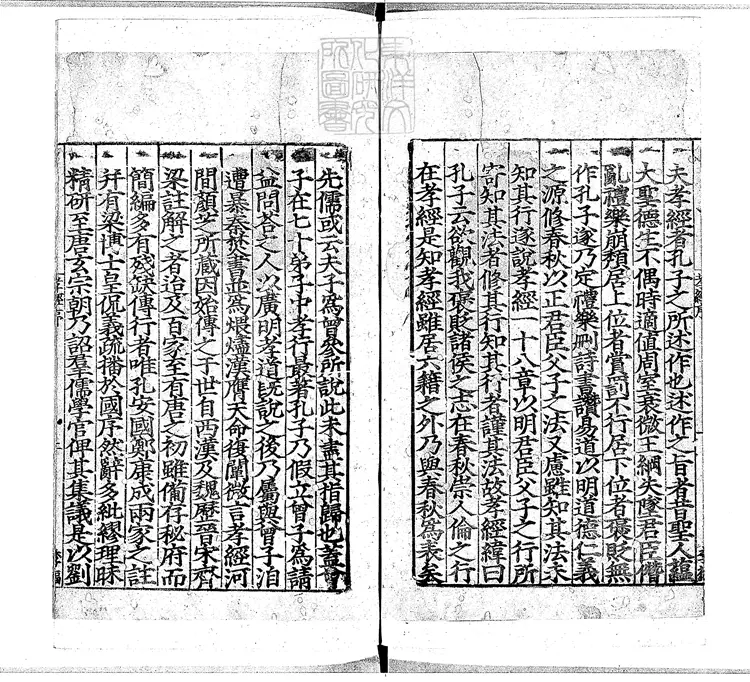 夫孝經者孔子之所述作也述作之旨者昔聖人蘊
大聖德生不偶時適值周室衰微王綱失墜君臣僭
亂禮樂崩頹居上位者賞罰不行居下位者襃貶無
作孔子遂乃定禮樂刪詩書讚易道以明道德仁義
之源修春秋以正君臣父子之法又慮雖知其法未
知其行遂說孝經一十八章以明君臣父子之行所
寄知其法者修其行知其行者謹其法故孝經緯曰
孔子云欲觀我襃貶諸侯之志在春秋崇人倫之行
在孝經是知孝經雖居六籍之外乃與春秋為表矣
先儒或云夫子為曾參所說此未盡其指歸也蓋曾
子在七十弟子中孝行最著孔子乃假立曾子為請
益問荅之人以廣明孝道旣說之後乃屬與曾子洎
遭暴秦焚書並為煨燼漢膺天命復闡微言孝經河
間顏芝所藏因始傳之于世自西漢及魏歷晉宋齊
梁註解之者迨及百家至有唐之初雖備存秘府而
簡編多有殘缺傳行者唯孔安國鄭康成兩家之註
幷有梁博士皇侃義疏播於國序然辭多紕繆理昧
精研至唐玄宗朝乃詔羣儒學官俾其集議是以劉